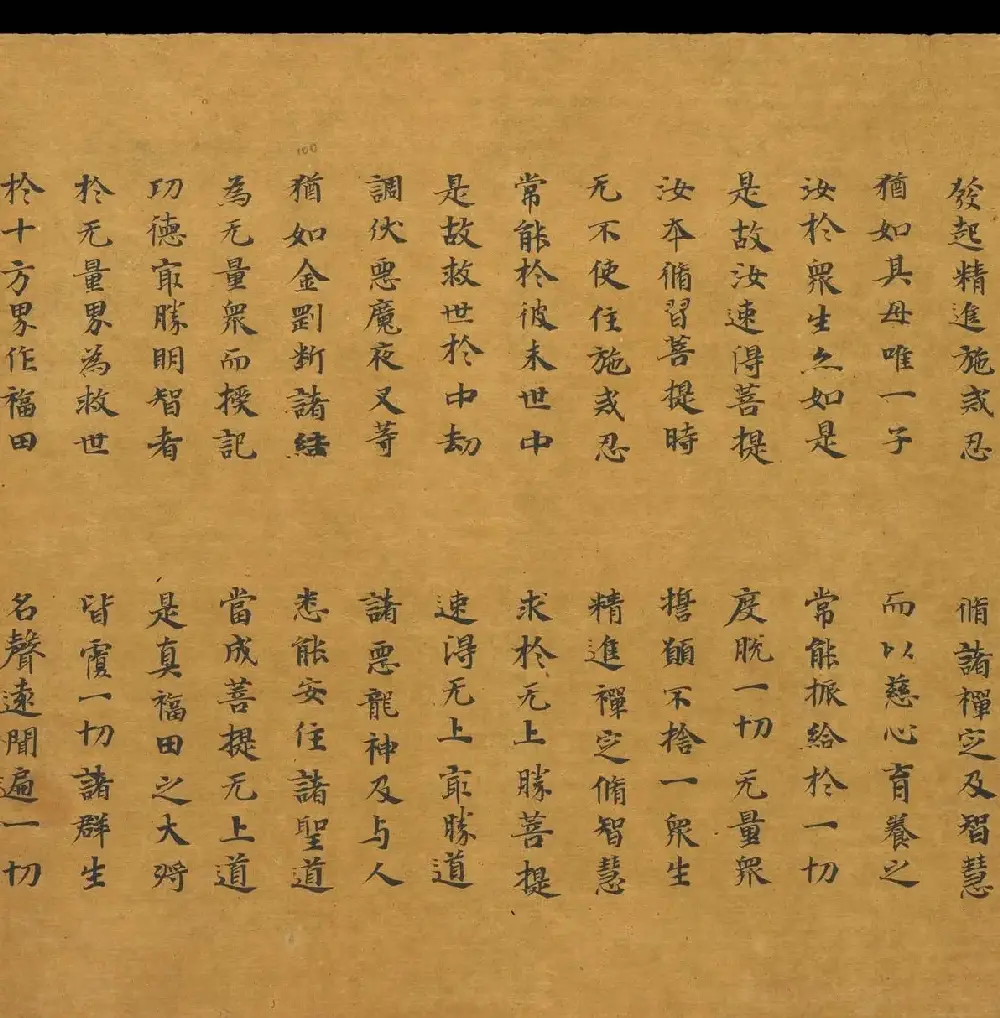 發起精進施戒忍 脩諸禪定及智慧
猶如其母唯一子 而以慈心育養之
汝於眾生亦如是 常能振給於一切
是故汝速得菩提 度脫一切无量眾
汝本脩習菩提時 誓願不捨一眾生
无不使住施戒忍 精進禪定脩智慧
常能於彼未世中 求於无上勝菩提
是故救世於中劫 速得无上寂勝道
調伏惡魔夜叉等 諸惡龍神及与人
100
猶如金剛斷諸結 悉能安住諸聖道
為无量眾而授記 當成菩提无上道
功德寂勝明智者 是真福田之大將
於无量界為救世 皆覆一切諸群生
於十方界作福田 名聲遠聞遍一切